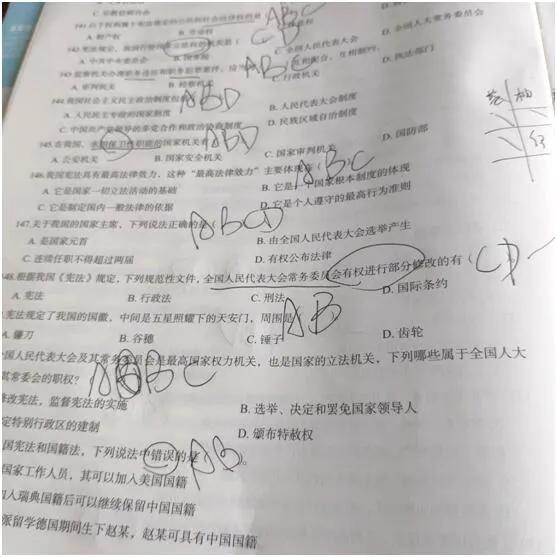 C. 宗教信仰自由
ABC
A. 财产权
B. 劳动权
CB
142.宪法规定,
D. 全国人大常务委员会
A. 中共中央委员会
B. 国务院
C. 全国人民代表大会
143.监察机关办理职务违法和职务犯罪案件,应当
互相配合,互相制约。
ABC
A. 审判机关
B. 检察机关
C. 行政机关
D. 执法部门
144.我国社会主义民主政治制度包括
ABD
A. 人民民主专政的国家制度
B. 人民代表大会制度
C. 中国共产党领导的多党合作和政治协商制度
D. 民族区域自治制度
145.在我国,承担保卫性职能的国家机关有
ABD
A. 公安机关
B. 国家安全机关
C. 国家审判机关
D. 国防部
146.我国宪法具有最高法律效力,这种“最高法律效力”主要体现在(
ABC
A. 它是国家一切立法活动的基础
B. 它是 国家根本制度的体现
C. 它是制定国内一般法律的依据
D. 它是个人遵守的最高行为准则
147.关于我国的国家主席,下列说法正确的是
ABCD
A. 是国家元首
B. 由全国人民代表大会选举产生
C. 连续任职不得超过两届
D. 有权公布法律
148.根据我国《宪法》规定,下列规范性文件,全国人民代表大会常务委员会有权进行部分修改的有(
CD
A. 宪法
B. 行政法
C. 刑法
D. 国际条约
宪法规定了我国的国徽,中间是五星照耀下的天安门,周围是(
AB
A. 镰刀
B. 谷穗
C. 锤子
D. 齿轮
国人民代表大会及其常务委员会是最高国家权力机关,也是国家的立法机关,下列哪些属于全国人大
其常委会的职权?
ABBC
修改宪法,监督宪法的实施
B. 选举、决定和罢免国家领导人
定特别行政区的建制
D. 颁布特赦权
国宪法和国籍法,下列说法中错误的是( )。
AB
国家工作人员,其可以加入美国国籍
加入瑞典国籍后可以继续保留中国国籍
派留学德国期间生下赵某,赵某可具有中国国籍